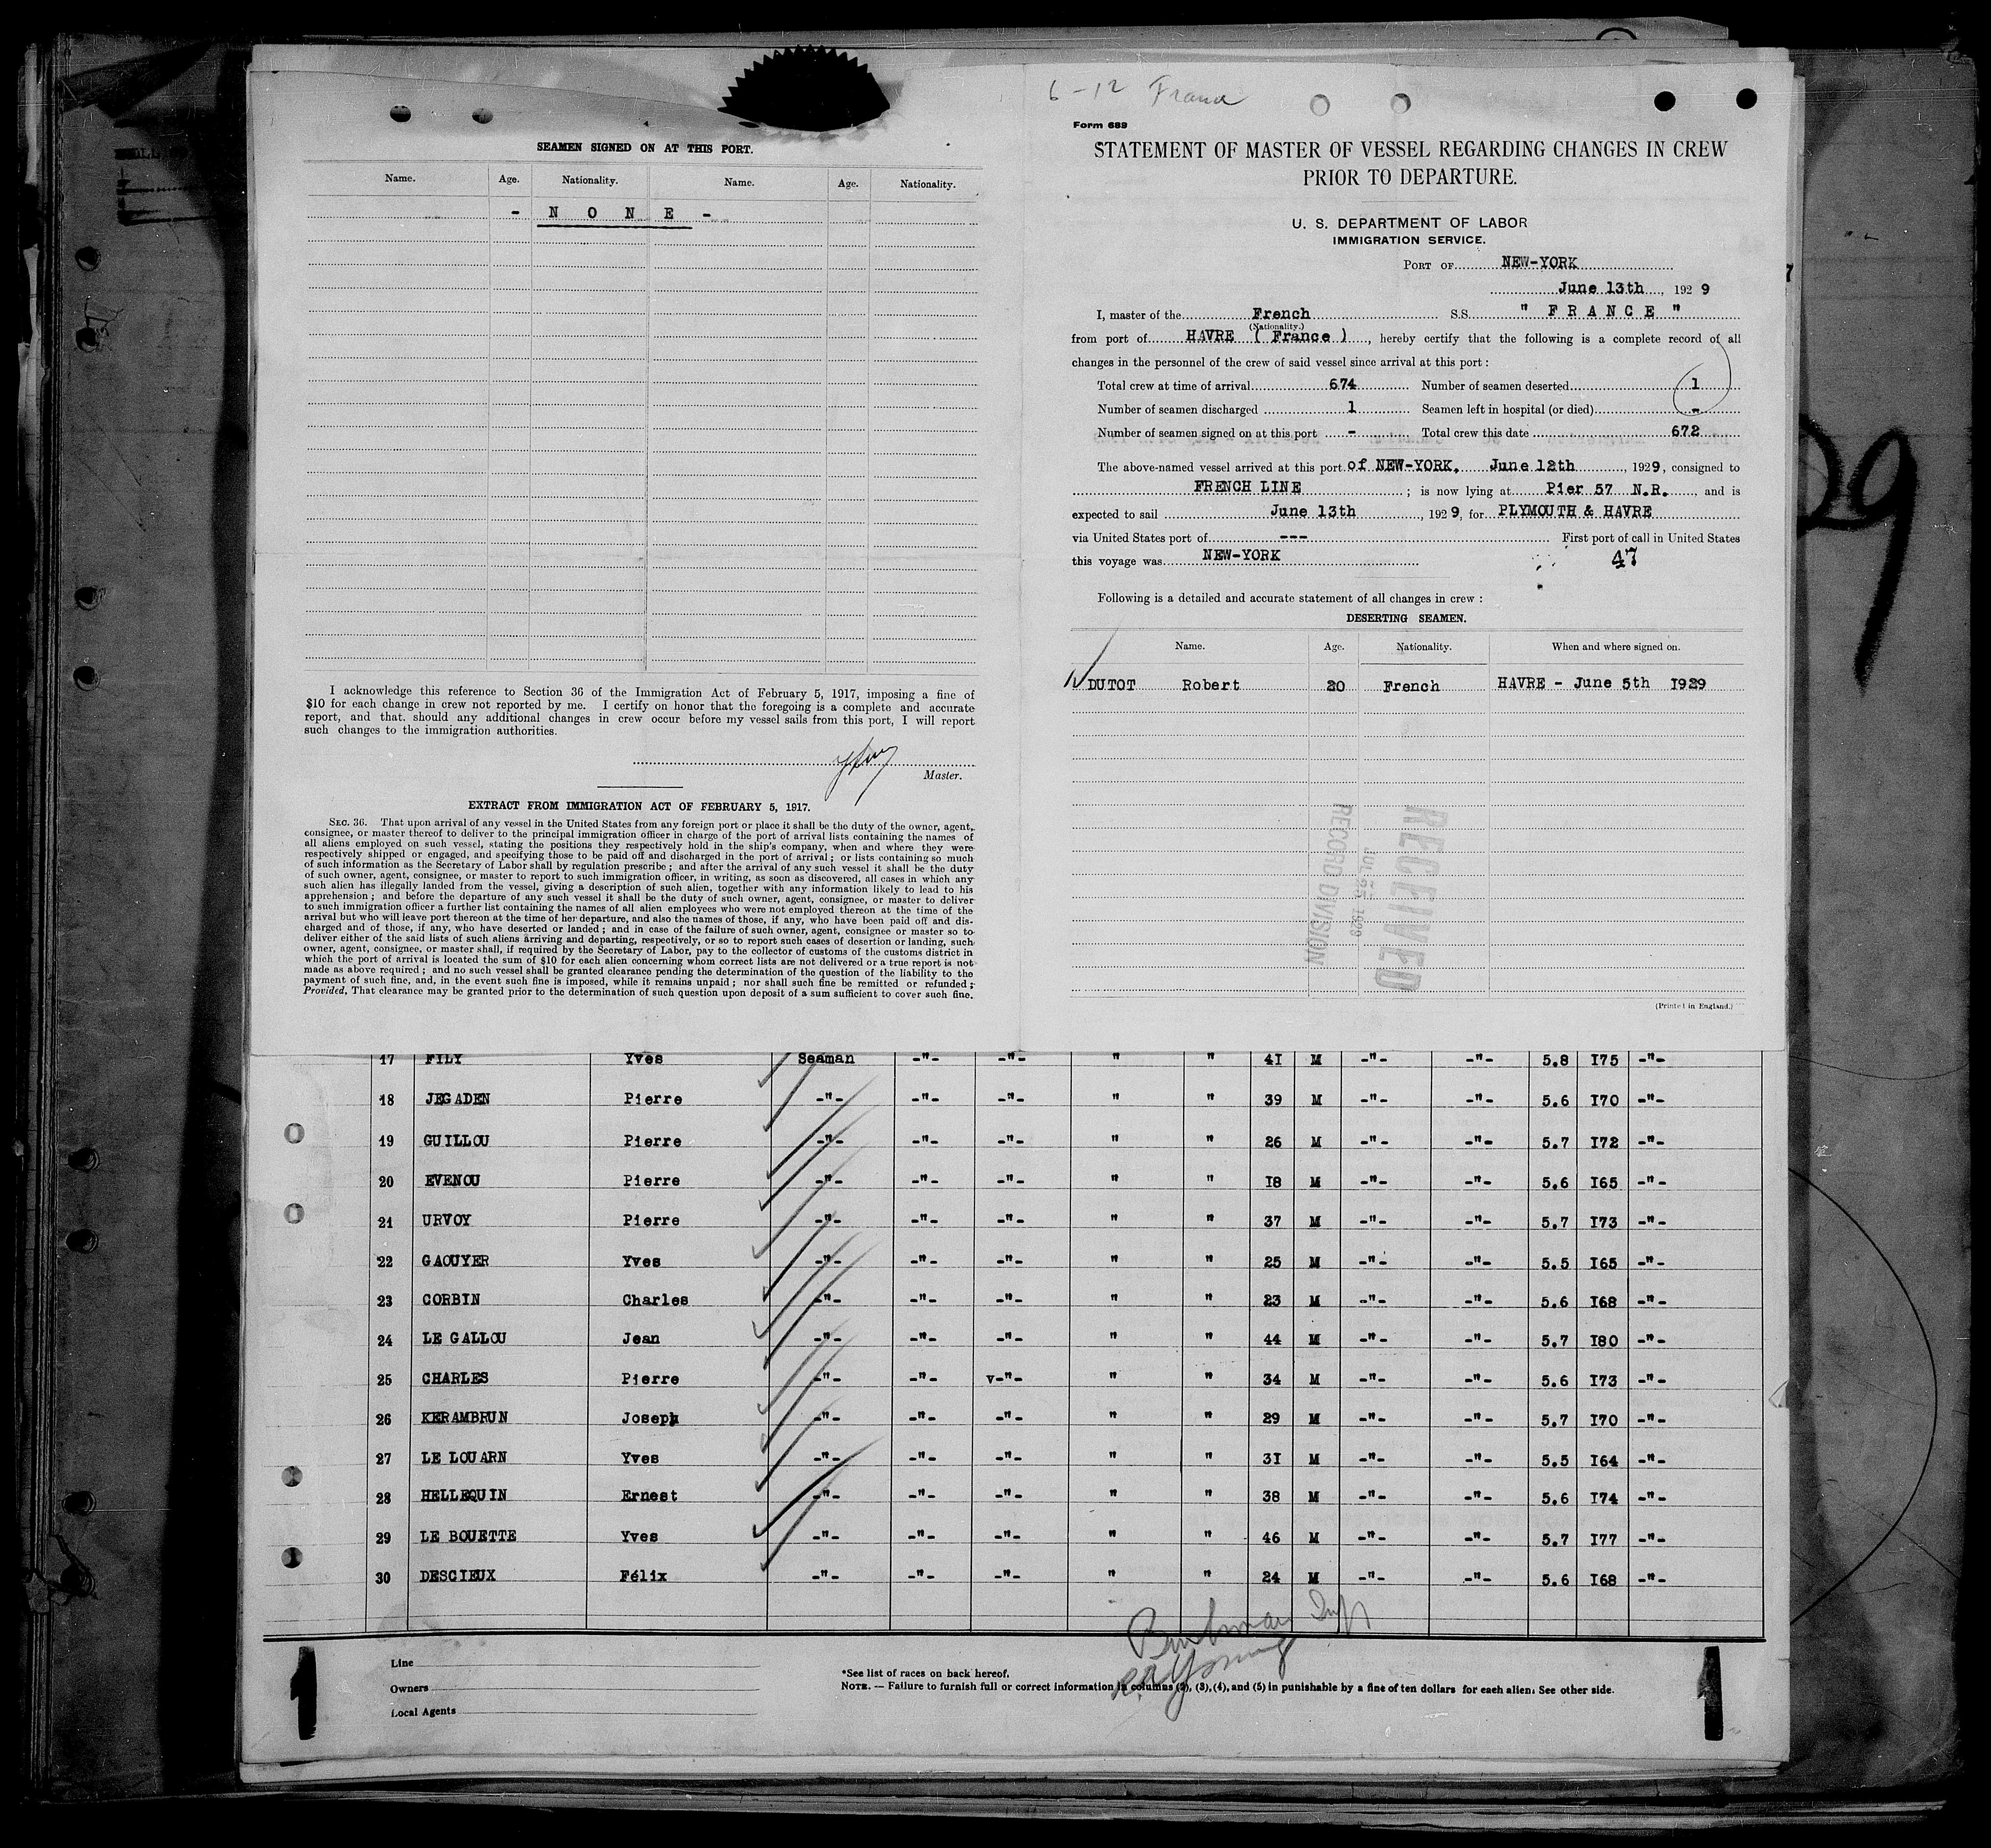 6-12 France
SEAMEN SIGNED ON AT THIS PORT.
Name. Age. Nationality. Name. Age. Nationality.
- N O N E -
I acknowledge this reference to Section 36 of the Immigration Act of February 5, 1917, imposing a fine of
$10 for each change in crew not reported by me. I certify on honor that the foregoing is a complete and accurate
report, and that should any additional changes in crew occur before my vessel sails from this port, I will report
such changes to the immigration authorities.
Master.
EXTRACT FROM IMMIGRATION ACT OF FEBRUARY 5, 1917.
SEC. 36. That upon arrival of any vessel in the United States from any foreign port or place it shall be the duty of the owner, agent,
consignee, or master thereof to deliver to the principal immigration officer in charge of the port of arrival lists containing the names of
all aliens employed on such vessel, stating the positions they respectively hold in the ship's company, when and where they were
respectively shipped or engaged, and specifying those to be paid off and discharged in the port of arrival; or lists containing so much
of such information as the Secretary of Labor shall by regulation prescribe; and after the arrival of any such vessel it shall be the duty
of such owner, agent, consignee, or master to report to such immigration officer, in writing, as soon as discovered, all cases in which any
such alien has illegally landed from the vessel, giving a description of such alien, together with any information likely to lead to his
apprehension; and before the departure of any such vessel it shall be the duty of such owner, agent, consignee, or master to deliver
to such immigration officer a further list containing the names of all alien employees who were not employed thereon at the time of the
arrival but who will leave port thereon at the time of her departure, and also the names of those, if any, who have been paid off and dis-
charged and of those, if any, who have deserted or landed; and in case of the failure of such owner, agent, consignee or master so to
deliver either of the said lists of such aliens arriving and departing, respectively, or so to report such cases of desertion or landing, such
owner, agent, consignee, or master shall, if required by the Secretary of Labor, pay to the collector of customs of the customs district in
which the port of arrival is located the sum of $10 for each alien concerning whom correct lists are not delivered or a true report is not
made as above required; and no such vessel shall be granted clearance pending the determination of the question of the liability to the
payment of such fine, and, in the event such fine is imposed, while it remains unpaid; nor shall such fine be remitted or refunded;
Provided, That clearance may be granted prior to the determination of such question upon deposit of a sum sufficient to cover such fine.
Form 689
STATEMENT OF MASTER OF VESSEL REGARDING CHANGES IN CREW
PRIOR TO DEPARTURE.
U. S. DEPARTMENT OF LABOR
IMMIGRATION SERVICE.
PORT OF NEW-YORK
June 13th, 1929
I, master of the French S.S. " F R A N C E "
(Nationality.)
from port of HAVRE ( France ), hereby certify that the following is a complete record of all
changes in the personnel of the crew of said vessel since arrival at this port:
Total crew at time of arrival 674 Number of seamen deserted 1
Number of seamen discharged 1 Seamen left in hospital (or died) -
Number of seamen signed on at this port - Total crew this date 672
The above-named vessel arrived at this port of NEW-YORK. June 12th, 1929, consigned to
FRENCH LINE; is now lying at Pier 57 N.R. and is
expected to sail June 13th, 1929, for PLYMOUTH & HAVRE
via United States port of --- First port of call in United States
this voyage was NEW-YORK 47
Following is a detailed and accurate statement of all changes in crew:
DESERTING SEAMEN.
Name. Age. Nationality. When and where signed on.
DUTOT Robert 20 French HAVRE - June 5th I929
RECEIVED
JUL 25 1929
RECORD DIVISION
(Printed in England.)
29
17 FILY Yves Seaman -"- -"- " " 4I M -"- -"- 5.8 I75 -"-
18 JEGADEN Pierre -"- -"- -"- " " 39 M -"- -"- 5.6 I70 -"-
19 GUILLOU Pierre -"- -"- -"- " " 26 M -"- -"- 5.7 I72 -"-
20 EVENOU Pierre -"- -"- -"- " " I8 M -"- -"- 5.6 I65 -"-
21 URVOY Pierre -"- -"- -"- " " 37 M -"- -"- 5.7 I73 -"-
22 GAOUYER Yves -"- -"- -"- " " 25 M -"- -"- 5.5 I65 -"-
23 CORBIN Charles -"- -"- -"- " " 23 M -"- -"- 5.6 I68 -"-
24 LE GALLOU Jean -"- -"- -"- " " 44 M -"- -"- 5.7 I80 -"-
25 CHARLES Pierre -"- -"- v-"- " " 34 M -"- -"- 5.6 I73 -"-
26 KERAMBRUN Joseph -"- -"- -"- " " 29 M -"- -"- 5.7 I70 -"-
27 LE LOUARN Yves -"- -"- -"- " " 3I M -"- -"- 5.5 I64 -"-
28 HELLEQUIN Ernest -"- -"- -"- " " 38 M -"- -"- 5.6 I74 -"-
29 LE BOUETTE Yves -"- -"- -"- " " 46 M -"- -"- 5.7 I77 -"-
30 DESCIEUX Félix -"- -"- -"- " " 24 M -"- -"- 5.6 I68 -"-
Line
Owners
Local Agents
*See list of races on back hereof.
NOTE. — Failure to furnish full or correct information in columns (2), (3), (4), and (5) in punishable by a fine of ten dollars for each alien. See other side.
1 1